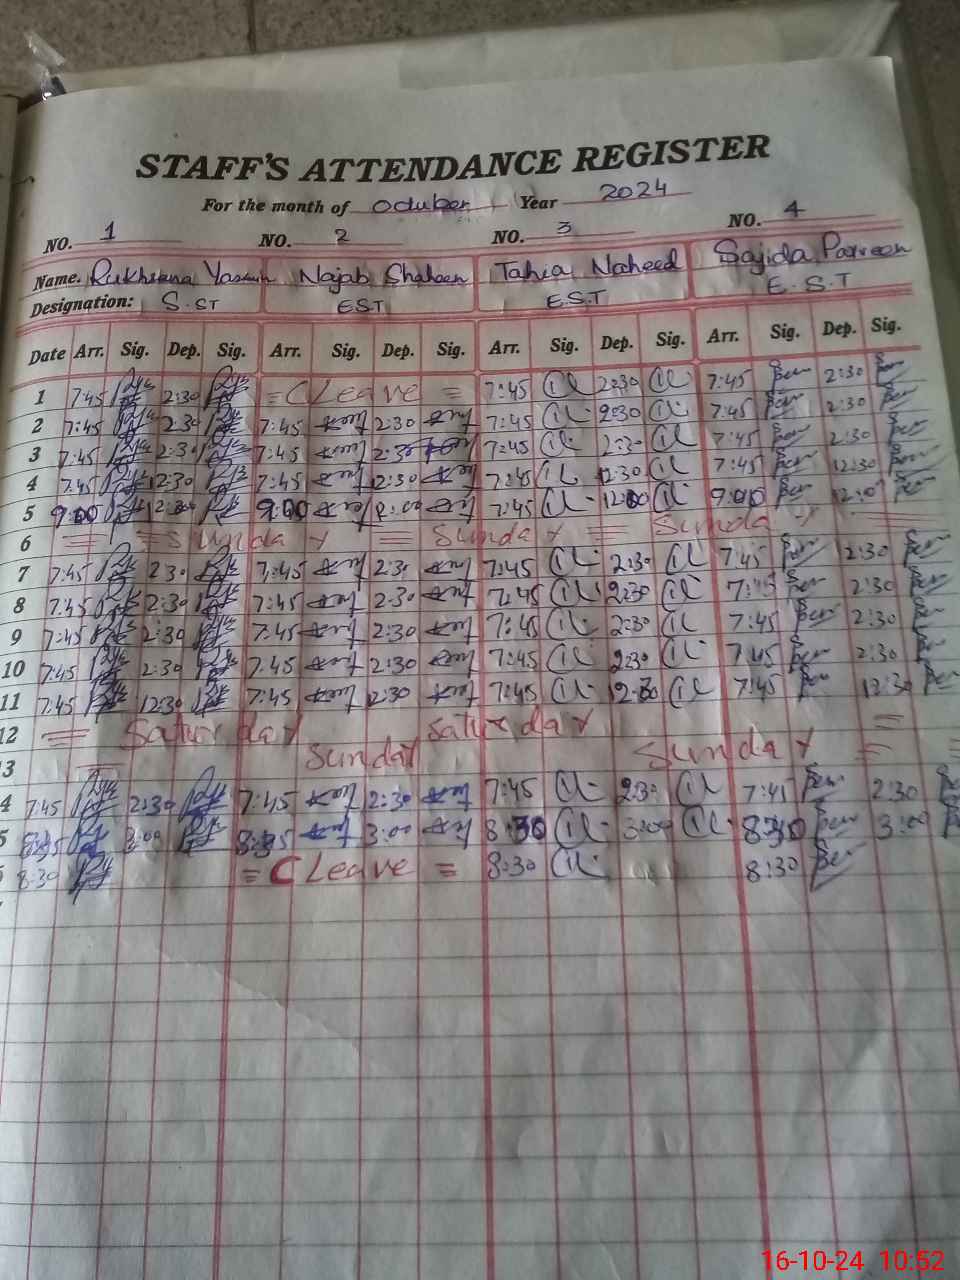 STAFF'S ATTENDANCE REGISTER
For the month of October Year 2024
NO. 1 NO. 2 NO. 3 NO. 4
Name. Rukhsana Yasmin Najab Shaheen Tahia Naheed Sajida Parveen
Designation: S.ST E.ST E.S.T E.S.T
Date Arr. Sig. Dep. Sig. Arr. Sig. Dep. Sig. Arr. Sig. Dep. Sig. Arr. Sig. Dep. Sig.
1 7:45 2:30 = C Leave = 7:45 2:30 7:45 2:30
2 7:45 2:30 7:45 2:30 7:45 2:30 7:45 2:30
3 7:45 2:30 7:45 2:30 7:45 2:30 7:45 2:30
4 7:45 12:30 7:45 12:30 7:45 12:30 7:45 12:30
5 9:00 9:00 7:45 12:00 9:00 12:00
6 = = Sunday = Sunday = Sunday =
7 7:45 2:30 7:45 2:30 7:45 2:30 7:45 2:30
8 7:45 2:30 7:45 2:30 7:45 2:30 7:45 2:30
9 7:45 2:30 7:45 2:30 7:45 2:30 7:45 2:30
10 7:45 2:30 7:45 2:30 7:45 2:30 7:45 2:30
11 7:45 12:30 7:45 12:30 7:45 12:30 7:45 12:30
12 = Saturday Saturday =
3 = Sunday Sunday = =
4 7:45 2:30 7:45 2:30 7:45 2:30 7:45 2:30
5 3:00 3:00 8:30 3:00 8:30 3:00
8:30 = C Leave = 8:30 8:30
16-10-24 10:52